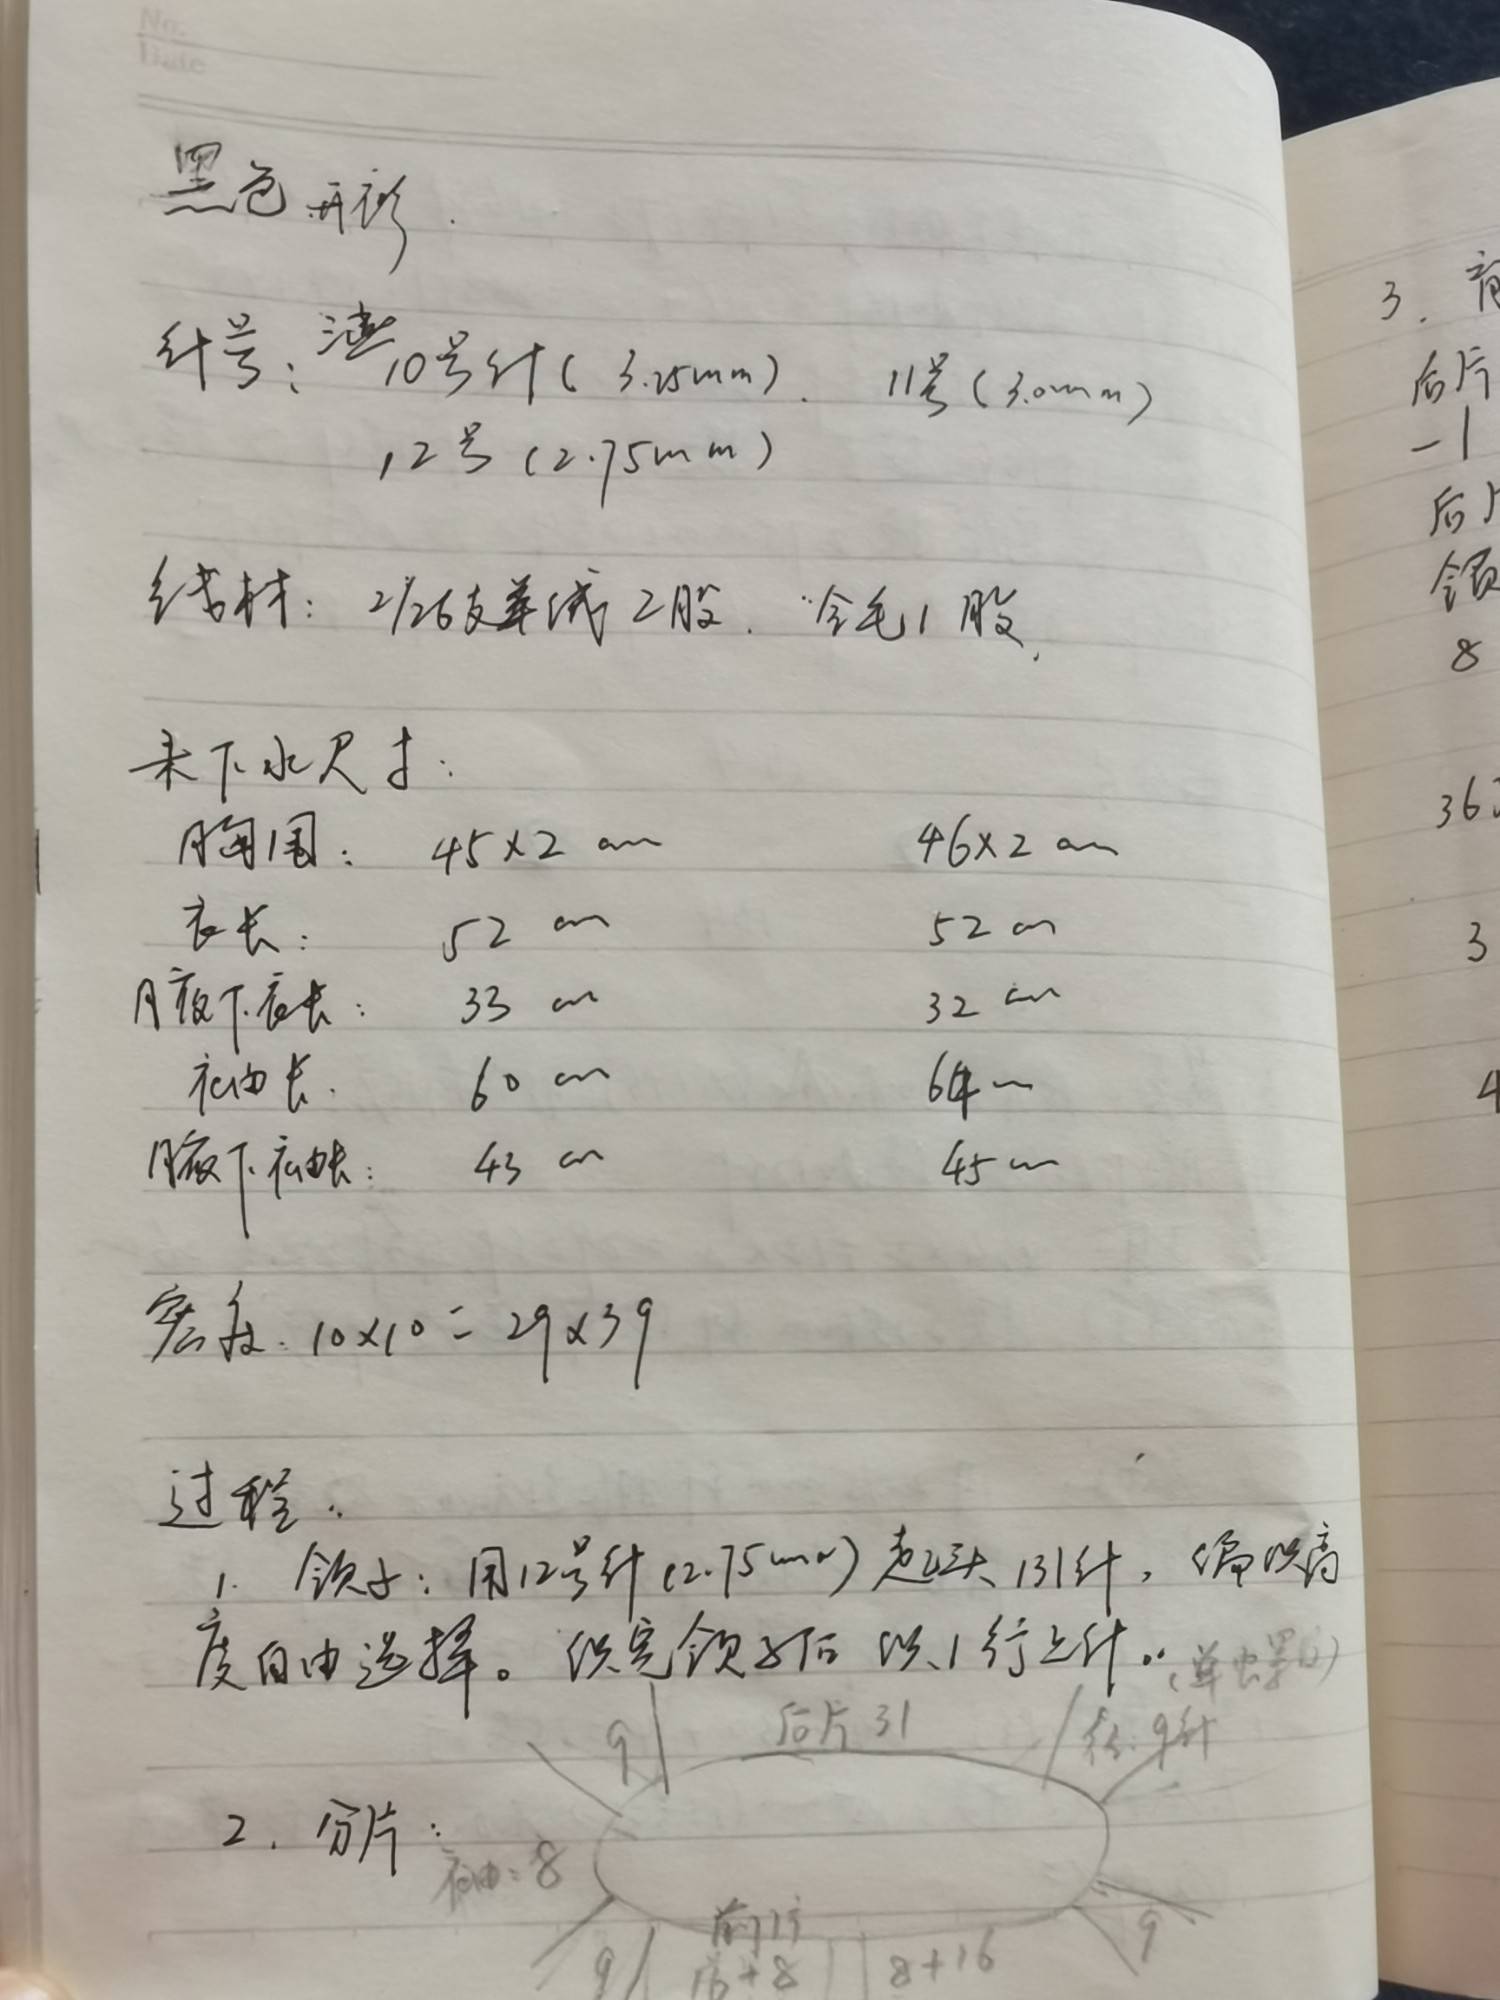 No.
Date
黑色开衫.
针号: 10号针(3.25mm). 11号(3.0mm)
12号(2.75mm)
线材: 2/26支羊绒2股. 1股.
未下水尺寸:
胸围: 45×2 cm 46×2 cm
衣长: 52 cm 52 cm
腋下衣长: 33 cm 32 cm
袖长. 60 cm 64 cm
腋下袖长: 43 cm 45 cm
密度. 10×10 = 29×39
过程:
1. 领子: 用12号针(2.75mm)起头131针, 编织高
度自由选择。织完领子后织1行上针。
9 后片31 9针
2. 分片:
衣袖: 8
9 前片 9
16+8 8+16
3.
后片
-1
后片
领
8
36
3
4